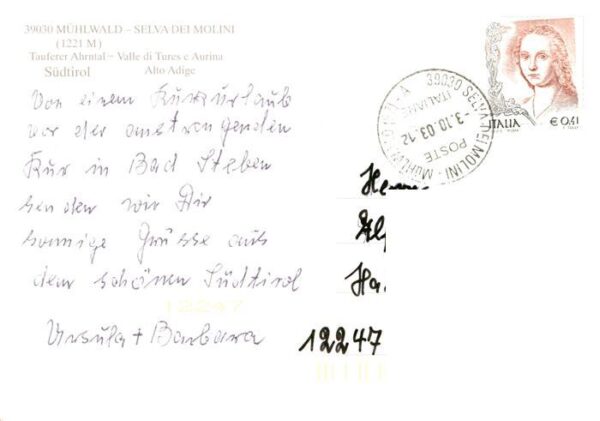 39030 MÜHLWALD – SELVA DEI MOLINI
(1221 M)
Tauferer Ahrntal – Valle di Tures e Aurina
Südtirol Alto Adige
Von einem Kurzurlaub
vor der anstrengenden
Kur in Bad Steben
senden wir Dir
sonnige Grüsse aus
dem schönen Südtirol
Ursula + Barbara
39030 SELVA DEI MOLINI - MÜHLWALD
POSTE ITALIANE
-3.10.03.12
ITALIA € 0,41
Ha.
12247
12247